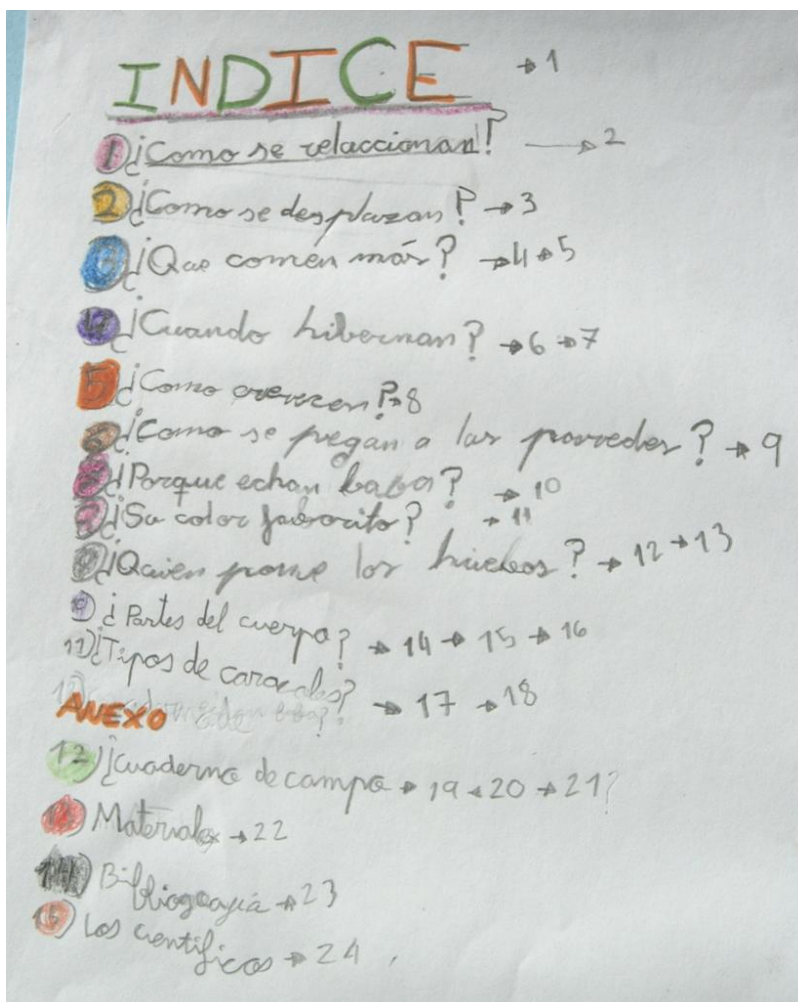 INDICE → 1
1 ¿Como se relaccionan? → 2
2 ¿Como se desplazan? → 3
3 ¿Que comen más? → 4 → 5
4 ¿Cuando hibernan? → 6 → 7
5 ¿Como crecen? → 8
6 ¿Como se pegan a las parredes? → 9
7 ¿Porque echan baba? → 10
¿Su color faborito? → 11
9 ¿Quien pone los huebos? → 12 → 13
10) ¿Partes del cuerpo? → 14 → 15 → 16
11) ¿Tipos de caracoles? → 17 → 18
ANEXO
12) ¿Cuaderno de campo → 19 → 20 → 21?
13) Materiales → 22
14) Bibliografia → 23
15) Los cientificos → 24